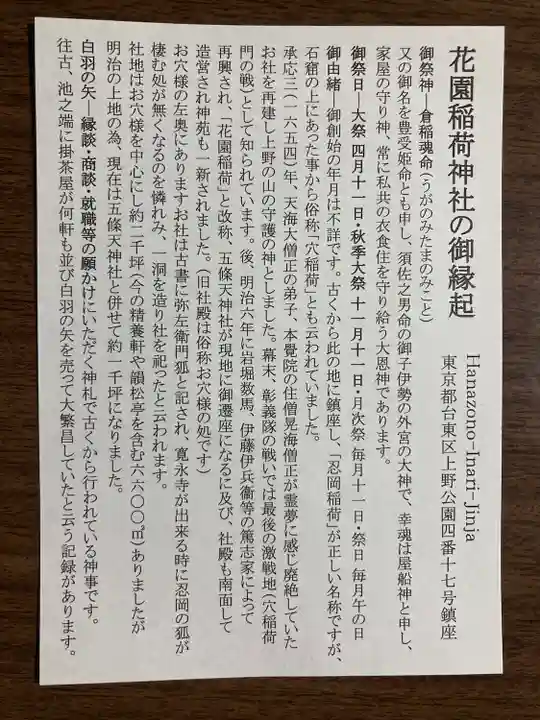 花園稲荷神社の御縁起
Hanazono-Inari-Jinja
東京都台東区上野公園四番十七号鎮座
御祭神―倉稲魂命(うがのみたまのみこと)
又の御名を豊受姫命とも申し、須佐之男命の御子伊勢の外宮の大神で、幸魂は屋船神と申し、
家屋の守り神、常に私共の衣食住を守り給う大恩神であります。
御祭日―大祭 四月十一日・秋季大祭 十一月十一日・月次祭 毎月十一日・祭日 毎月午の日
御由緒―御創始の年月は不詳です。古くから此の地に鎮座し、「忍岡稲荷」が正しい名称ですが、
石窟の上にあった事から俗称「穴稲荷」とも云われていました。
承応三(一六五四)年、天海大僧正の弟子、本覺院の住僧晃海僧正が霊夢に感じ廃絶していた
お社を再建し上野の山の守護の神としました。幕末、彰義隊の戦いでは最後の激戦地(穴稲荷
門の戦)として知られています。後、明治六年に岩堀数馬、伊藤伊兵衞等の篤志家によって
再興され、「花園稲荷」と改称、五條天神社が現地に御遷座になるに及び、社殿も南面して
造営され神苑も一新されました。(旧社殿は俗称お穴様の処です)
お穴様の左奥にありますお社は古書に弥左衛門狐と記され、寛永寺が出来る時に忍岡の狐が
棲む処が無くなるのを憐れみ、一洞を造り社を祀ったと云われます。
社地はお穴様を中心にし約二千坪(今の精養軒や韻松亭を含む六六〇〇㎡)ありましたが
明治の上地の為、現在は五條天神社と併せて約一千坪になりました。
白羽の矢―縁談・商談・就職等の願かけにいただく神札で古くから行われている神事です。
往古、池之端に掛茶屋が何軒も並び白羽の矢を売って大繁昌していたと云う記録があります。